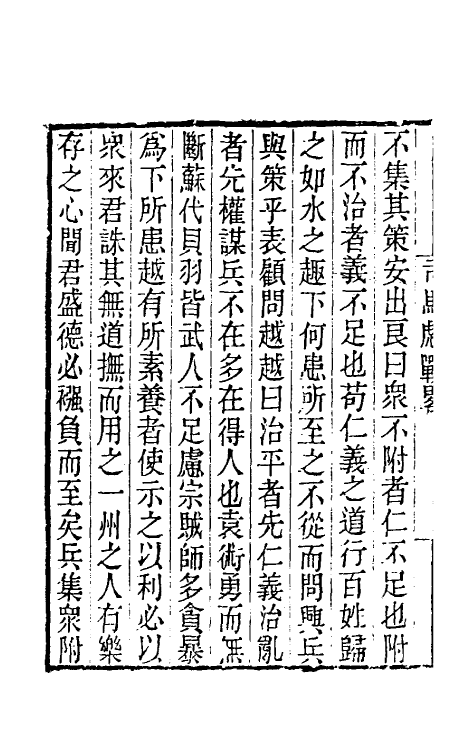 不集其策安出良曰衆不附者仁不足也附
而不治者義不足也苟仁義之道行百姓歸
之如水之趣下何患所至之不從而問興兵
與策乎表顧問越越曰治平者先仁義治亂
者先權謀兵不在多在得人也袁術勇而無
斷蘇代貝羽皆武人不足慮宗賊師多貪暴
爲下所患越有所素養者使示之以利必以
衆來君誅其無道撫而用之一州之人有樂
存之心聞君盛德必襁負而至矣兵集衆附